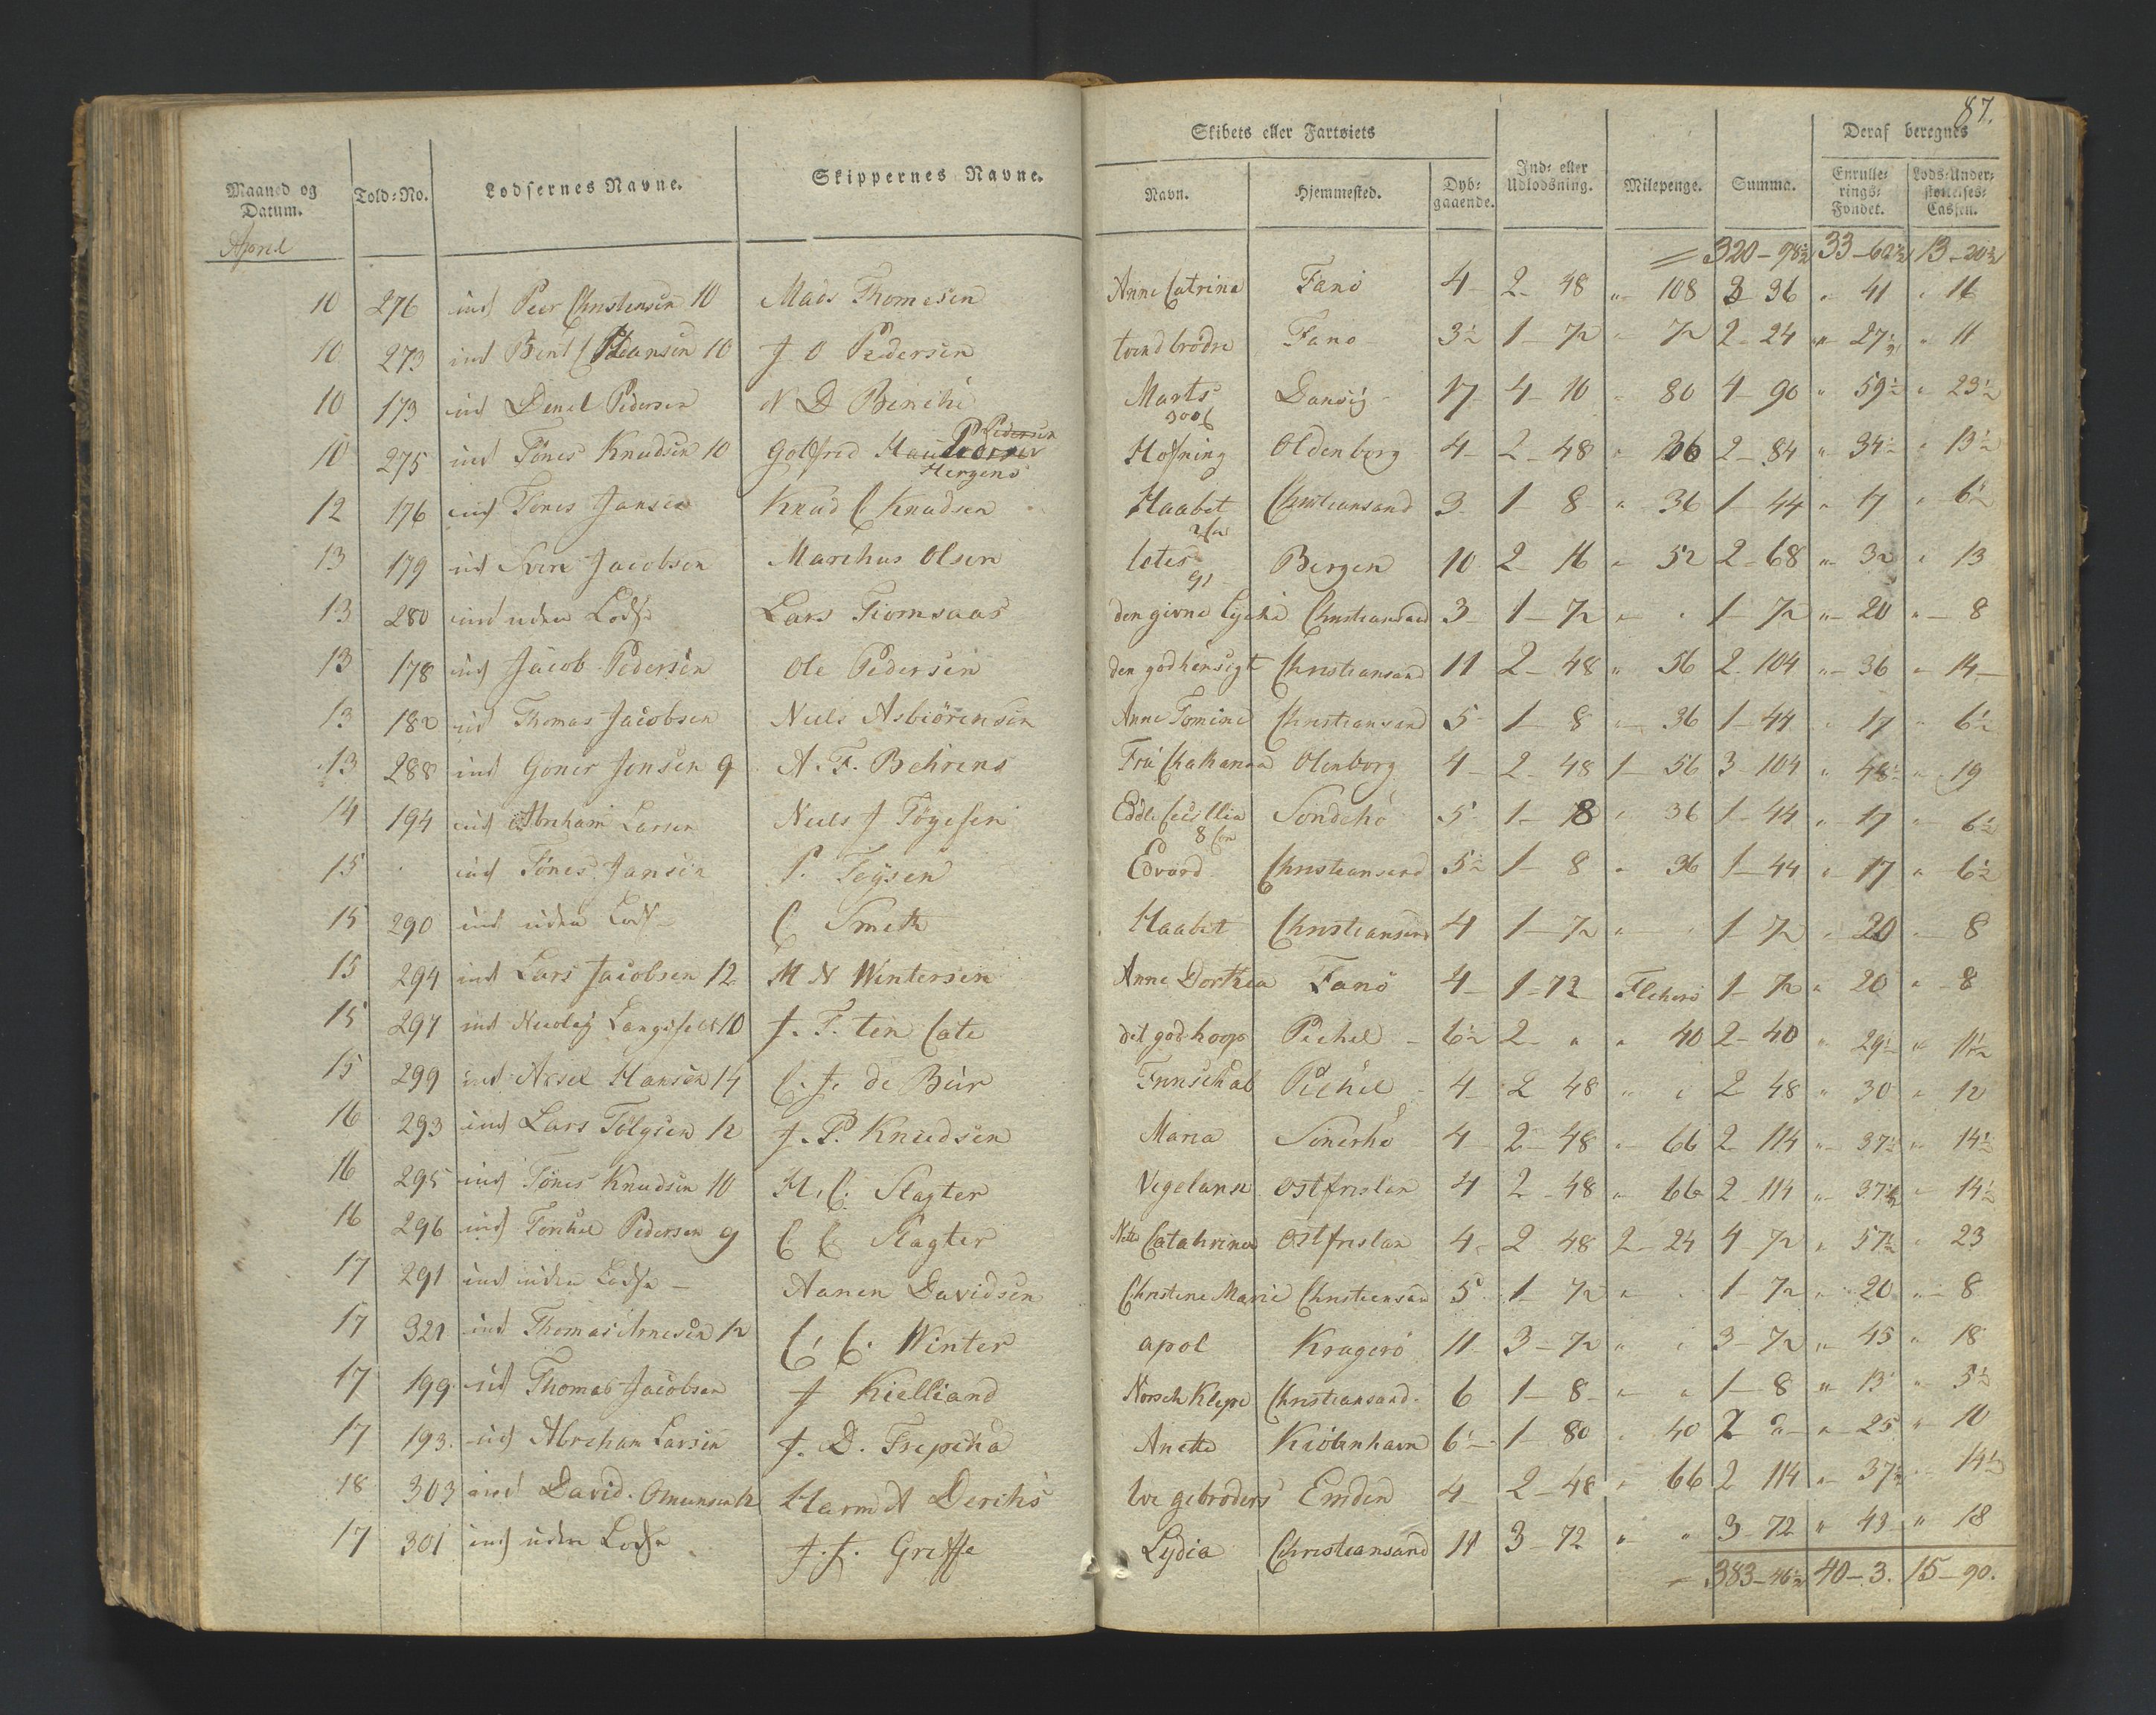 87.
Maaned og Datum. Told-No. Lodsernes Navne. Skippernes Navne. Skibets eller Fartøiets Navn. Hjemmested. Dybgaaende. Ind- eller Udlodsning. Milepenge. Summa. Deraf beregnes Enrullerings-Fondet. Lods-Understøttelses-Cassen.
April 320-98½ 33-62½ 13-20½
10 276 ind Peer Christensen 10 Mads Thomesen Anne Catrina Fanö 4 2-48 " 108 3 36 " 41 " 16
10 273 ind Bent Hansen 10 J O Pedersen tvend brödre Fanö 3½ 1-72 " 72 2-24 " 27½ " 11
10 173 ud Denel Pedersen N D Benche Marts Dansig 17 4-10 " 80 4-90 " 59½ " 23½
10 275 ind Tönes Knudsen 10 Gotfred Hergens Hofning Oldenborg 4 2-48 " 36 2-84 " 34½ " 13½
12 176 ud Tönes Jansen Knud C Knudsen Haabet Christiansand 3 1-8 " 36 1-44 " 17 " 6½
13 179 ud Sven Jacobsen Marchus Olsen Bergen 10 2-16 " 52 2-68 " 32 " 13
13 280 ind uden Lods Lars Tiomsaas den givne Lyche Christiansand 3 1-72 " " 1-72 " 20 " 8
13 178 ud Jacob Pedersen Ole Pedersen den god hensigt Christiansand 11 2-48 " 56 2-104 " 36 " 14
13 182 ud Thomas Jacobsen Niels Asbiörensen Anne Tomine Christiansand 5 1-8 " 36 1-44 " 17 " 6½
13 288 ind Goner Jonsen 9 A. F. Behrens Olenborg 4 2-48 1-56 3-104 " 48½ " 19
14 194 ud Abreham Larsen Niels J Tögesen Edde Cecillia Sondehö 5 1-8 " 36 1-44 " 17 " 6½
15 ud Tönes Jansen P. Toysen Edvard Christiansand 5½ 1-8 " 36 1-44 " 17 " 6½
15 290 ind uden Lods C Smeth Haabet Christiansand 4 1-72 " 1-72 " 20 " 8
15 294 ind Lars Jacobsen 12 M N Wintersen Anne Dorthea Fanö 4 1-72 Flekerö 1-72 " 20 " 8
15 297 ind Nicolaj Langfeldt 10 J. F. ten Cate det god hoop Pechel 6½ 2 " " 40 2-40 " 29½ " 11½
15 299 ind Axsel Hansen 14 C. J. de Bür Pechel 4 2 48 " " 2 48 " 30 " 12
16 293 ind Lars Tölgsen 12 J. P. Knudsen Maria Sönerhö 4 2-48 " 66 2 114 " 37½ " 14½
16 295 ind Tönes Knudsen 10 H. C. Slagter Vigelanse Ostfrislan 4 2-48 " 66 2 114 " 37½ " 14½
16 296 ind Torchel Pedersen 9 C C Slagter Catahrina Ostfrislan 4 2 48 2-24 4-72 " 57½ " 23
17 291 ind uden Lods Aanen Davidsen Christine Marie Christiansand 5 1 72 " 1-72 " 20 " 8
17 321 ind Thomas Arnesen 12 C. C. Winter apol Kragerö 11 3-72 " " 3-72 " 45 " 18
17 199 ud Thomas Jacobsen J Kielliand Norsch Klype Christiansand 6 1-8 " " 1-8 " 13 " 5½
17 193 ud Abreham Larsen J. D. Trepcha Anette Kiöbenhavn 6½ 1-80 " 40 2 " " 25 " 10
18 303 ind David Omunsen 12 Harm A Derchs tve gebroders Emden 4 2-48 " 66 2 114 " 37½ " 14½
17 301 ind uden Lods J. J. Griffe Lydia Christiansand 11 3 72 " " 3-72 " 43 " 18
383-46½ 40-3. 15-90.